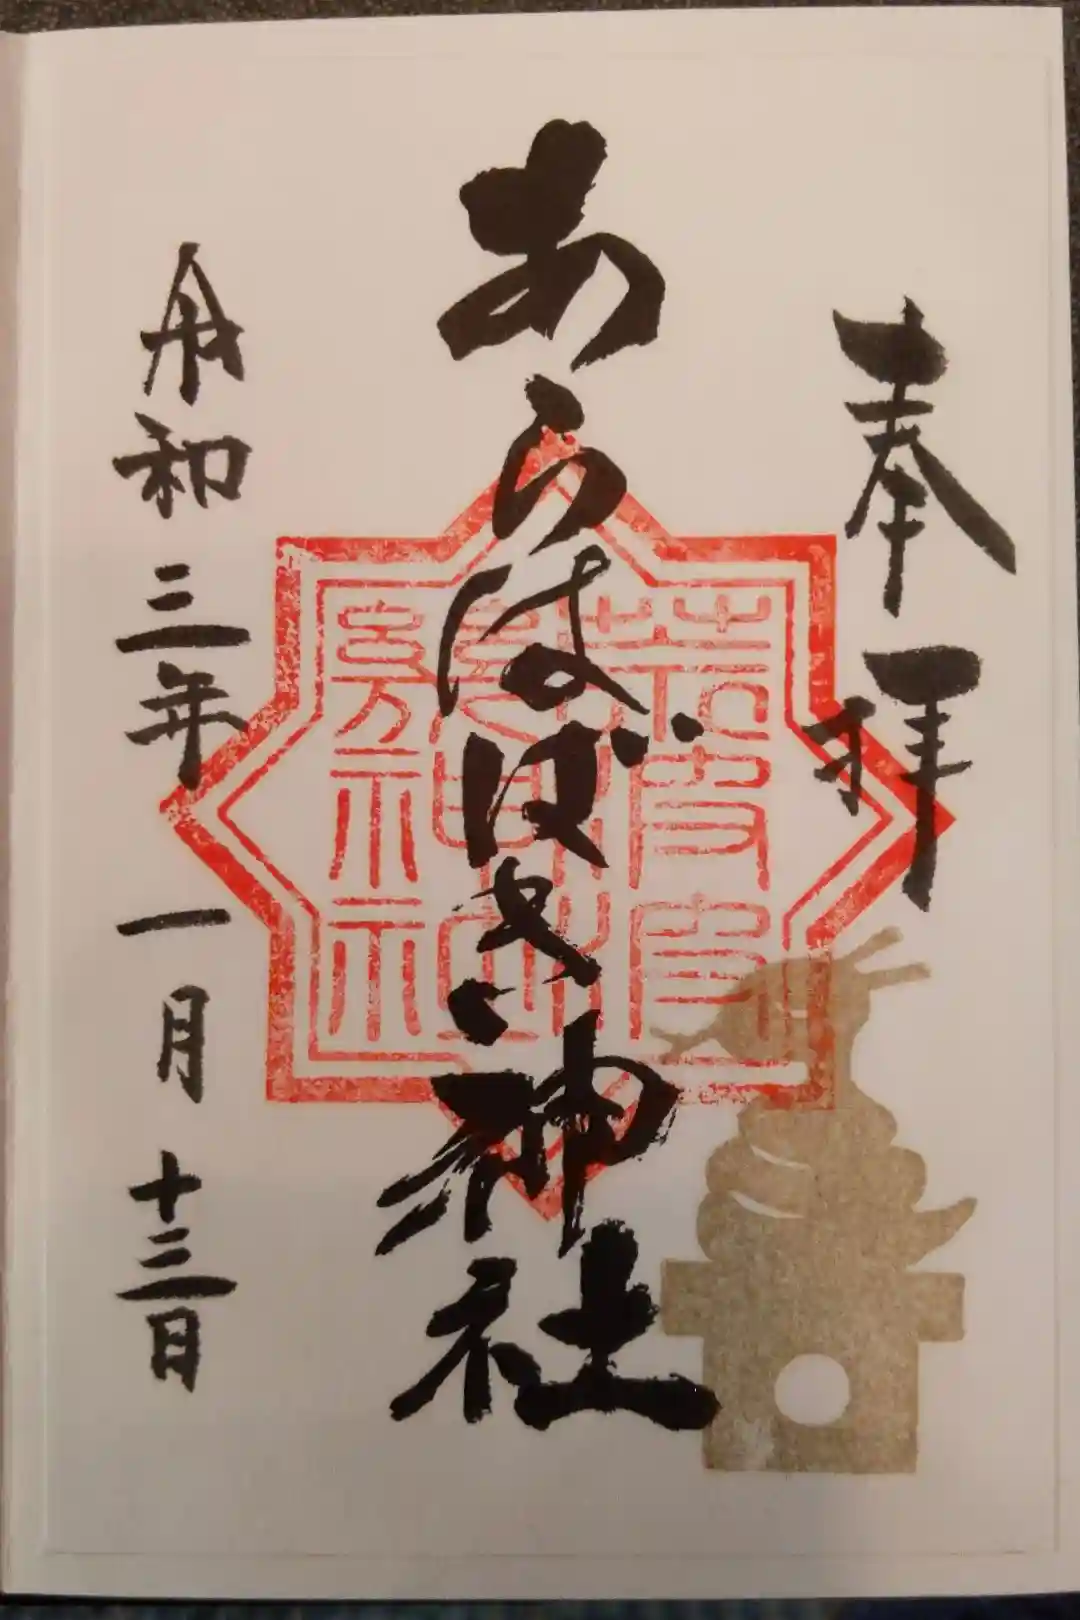 奉拝
あらはばき神社
令和三年一月十三日